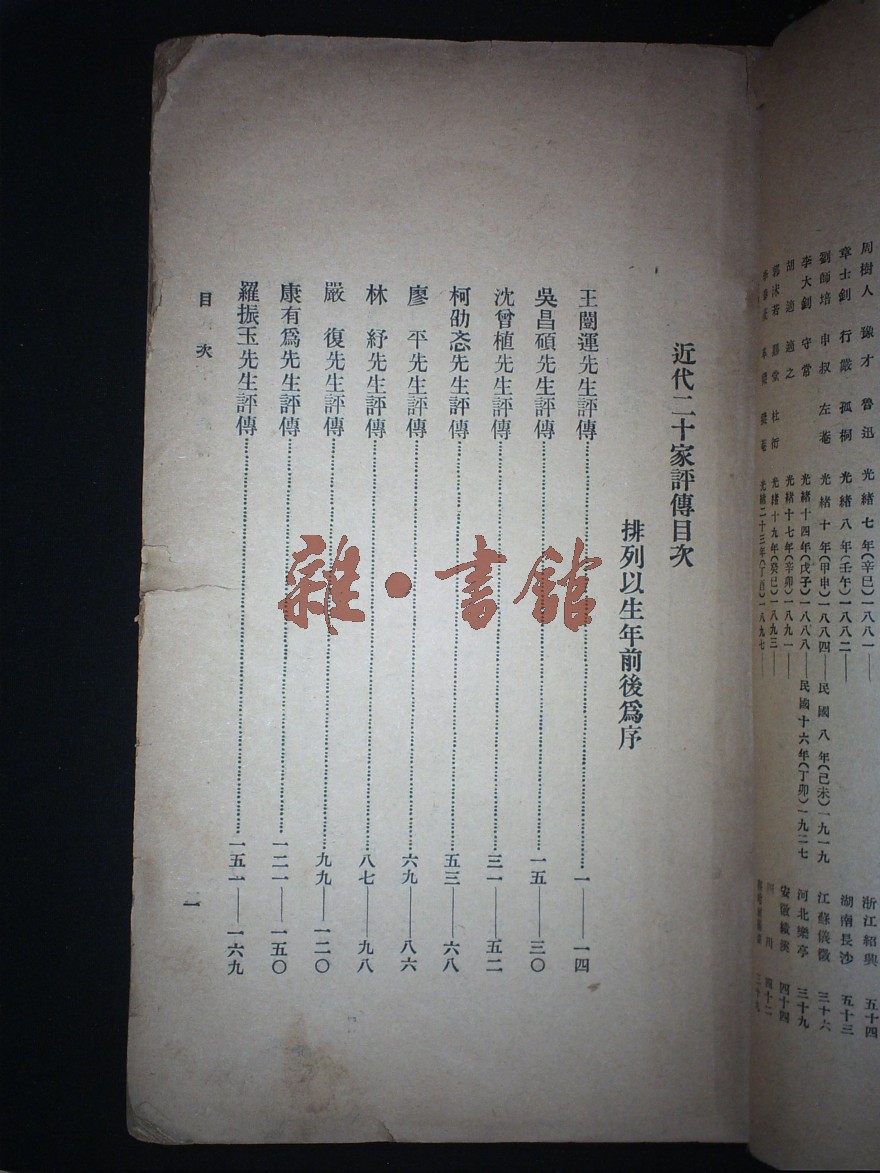 周樹人　豫才　魯迅　光緒七年(辛巳)一八八一——　浙江紹興　五十四
章士釗　行嚴　孤桐　光緒八年(壬午)一八八二——　湖南長沙　五十三
劉師培　申叔　左菴　光緒十年(甲申)一八八四——民國八年(己未)一九一九　江蘇儀徵　三十六
李大釗　守常　光緒十四年(戊子)一八八八——民國十六年(丁卯)一九二七　河北樂亭　三十九
胡適　適之　光緒十七年(辛卯)一八九一——　安徽績溪　四十四
郭沫若　鼎堂　杜衍　光緒十九年(癸巳)一八九三——　四川　四十二
光緒二十三年(丁酉)一八九七——　三十九
近代二十家評傳目次
排列以生年前後爲序
王闓運先生評傳……一——一四
吳昌碩先生評傳……一五——三〇
沈曾植先生評傳……三一——五二
柯劭忞先生評傳……五三——六八
廖　平先生評傳……六九——八六
林　紓先生評傳……八七——九八
嚴　復先生評傳……九九——一二〇
康有爲先生評傳……一二一——一五〇
羅振玉先生評傳……一五一——一六九
目次
一
雜·書館